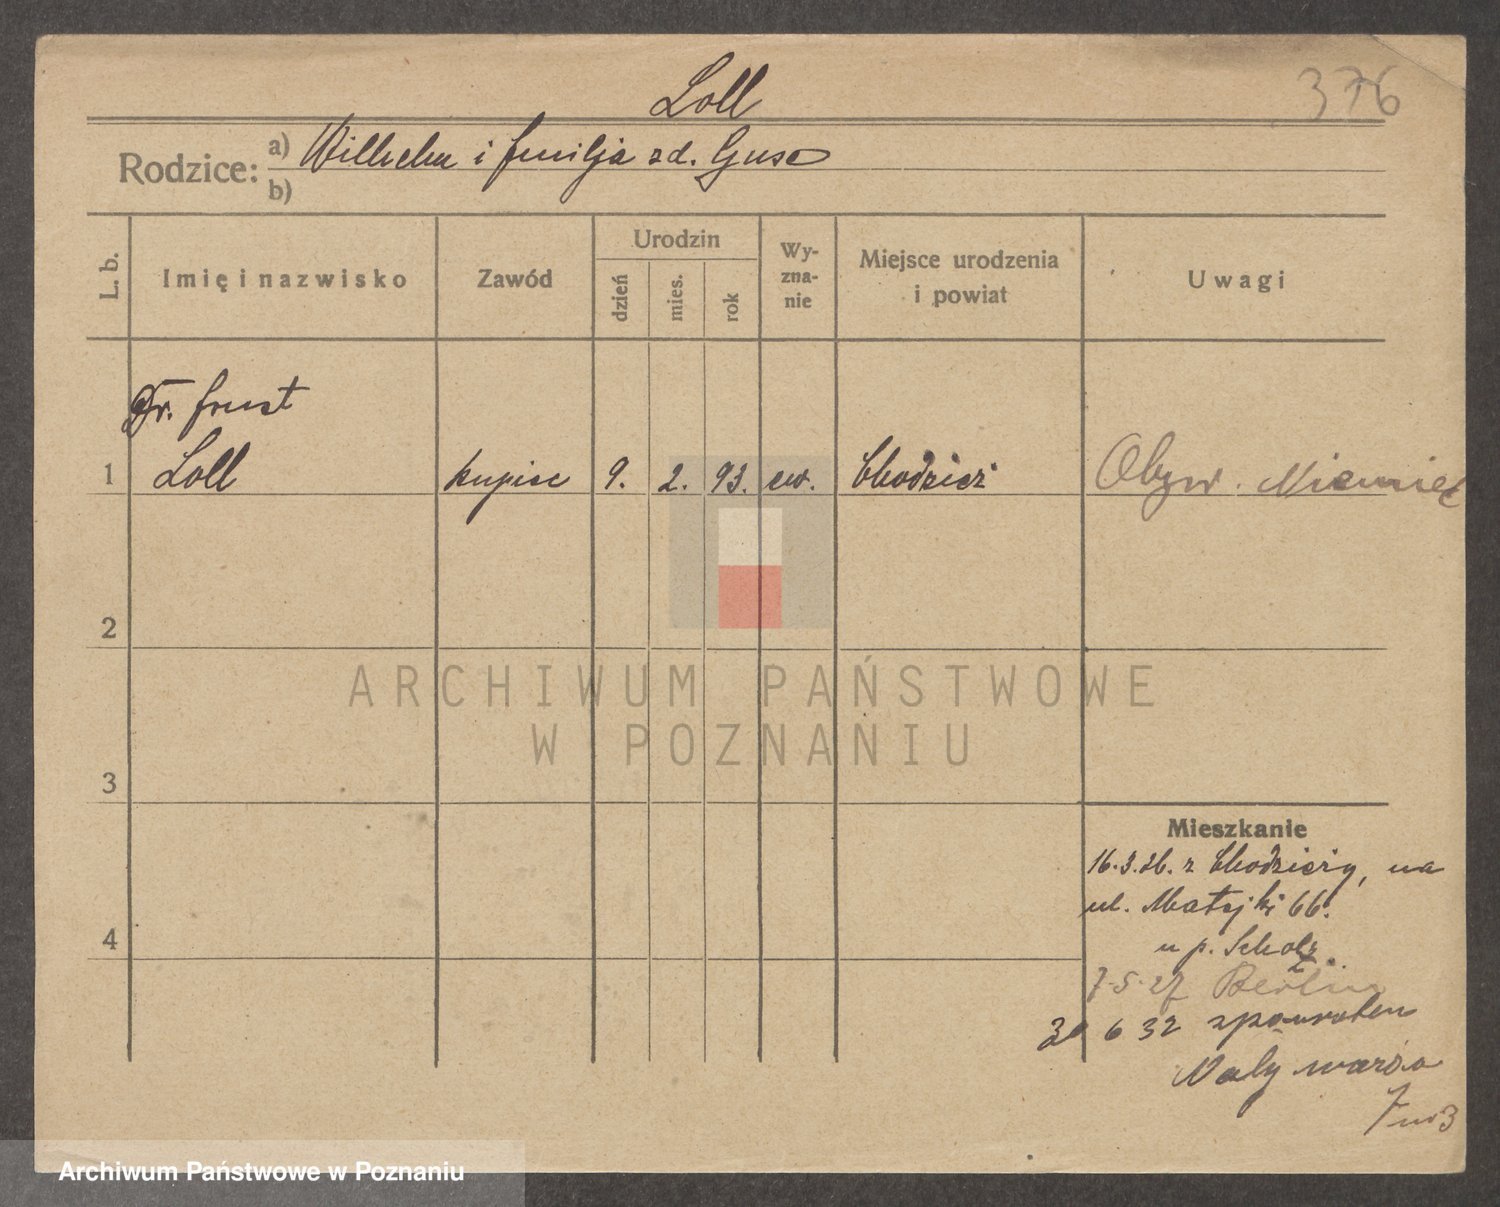 376
Loll
Rodzice: a) Wilhelm i Emilja zd. Guse
b)
L. b.
Imię i nazwisko
Zawód
Urodzin
dzień
mies.
rok
Wy-
zna-
nie
Miejsce urodzenia
i powiat
Uwagi
Dr. Ernst
1 Loll kupiec 9. 2. 93. ew. Chodzież Obyw. Niemiec
2
3
4
Mieszkanie
16.3.26. z Chodzieży, na
ul. Matejki 66.
u p. Scholz.
7-5-27 Berlin
30 6 32 zpowrotem
ARCHIWUM PAŃSTWOWE
W POZNANIU
Archiwum Państwowe w Poznaniu